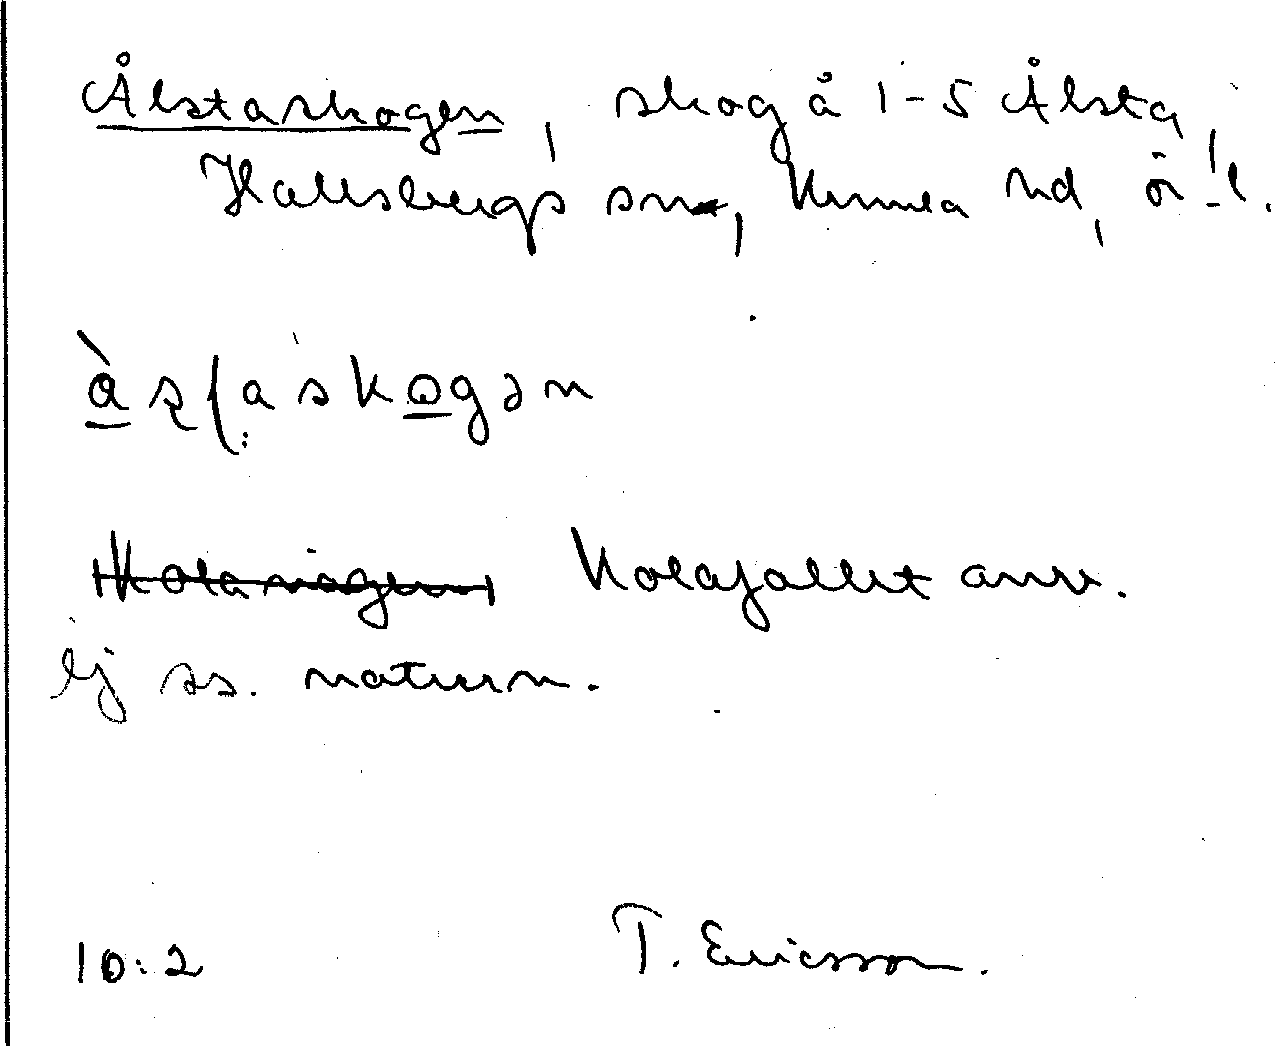 Ålstaskogen, skog å 1-5 Ålsta,
Hallsbergs sn, Kumla hd, ör. l.
àsṭaskogən
Kolavägen Kolafallet anv.
ej ss. naturn.
10:2 T. Ericsson.